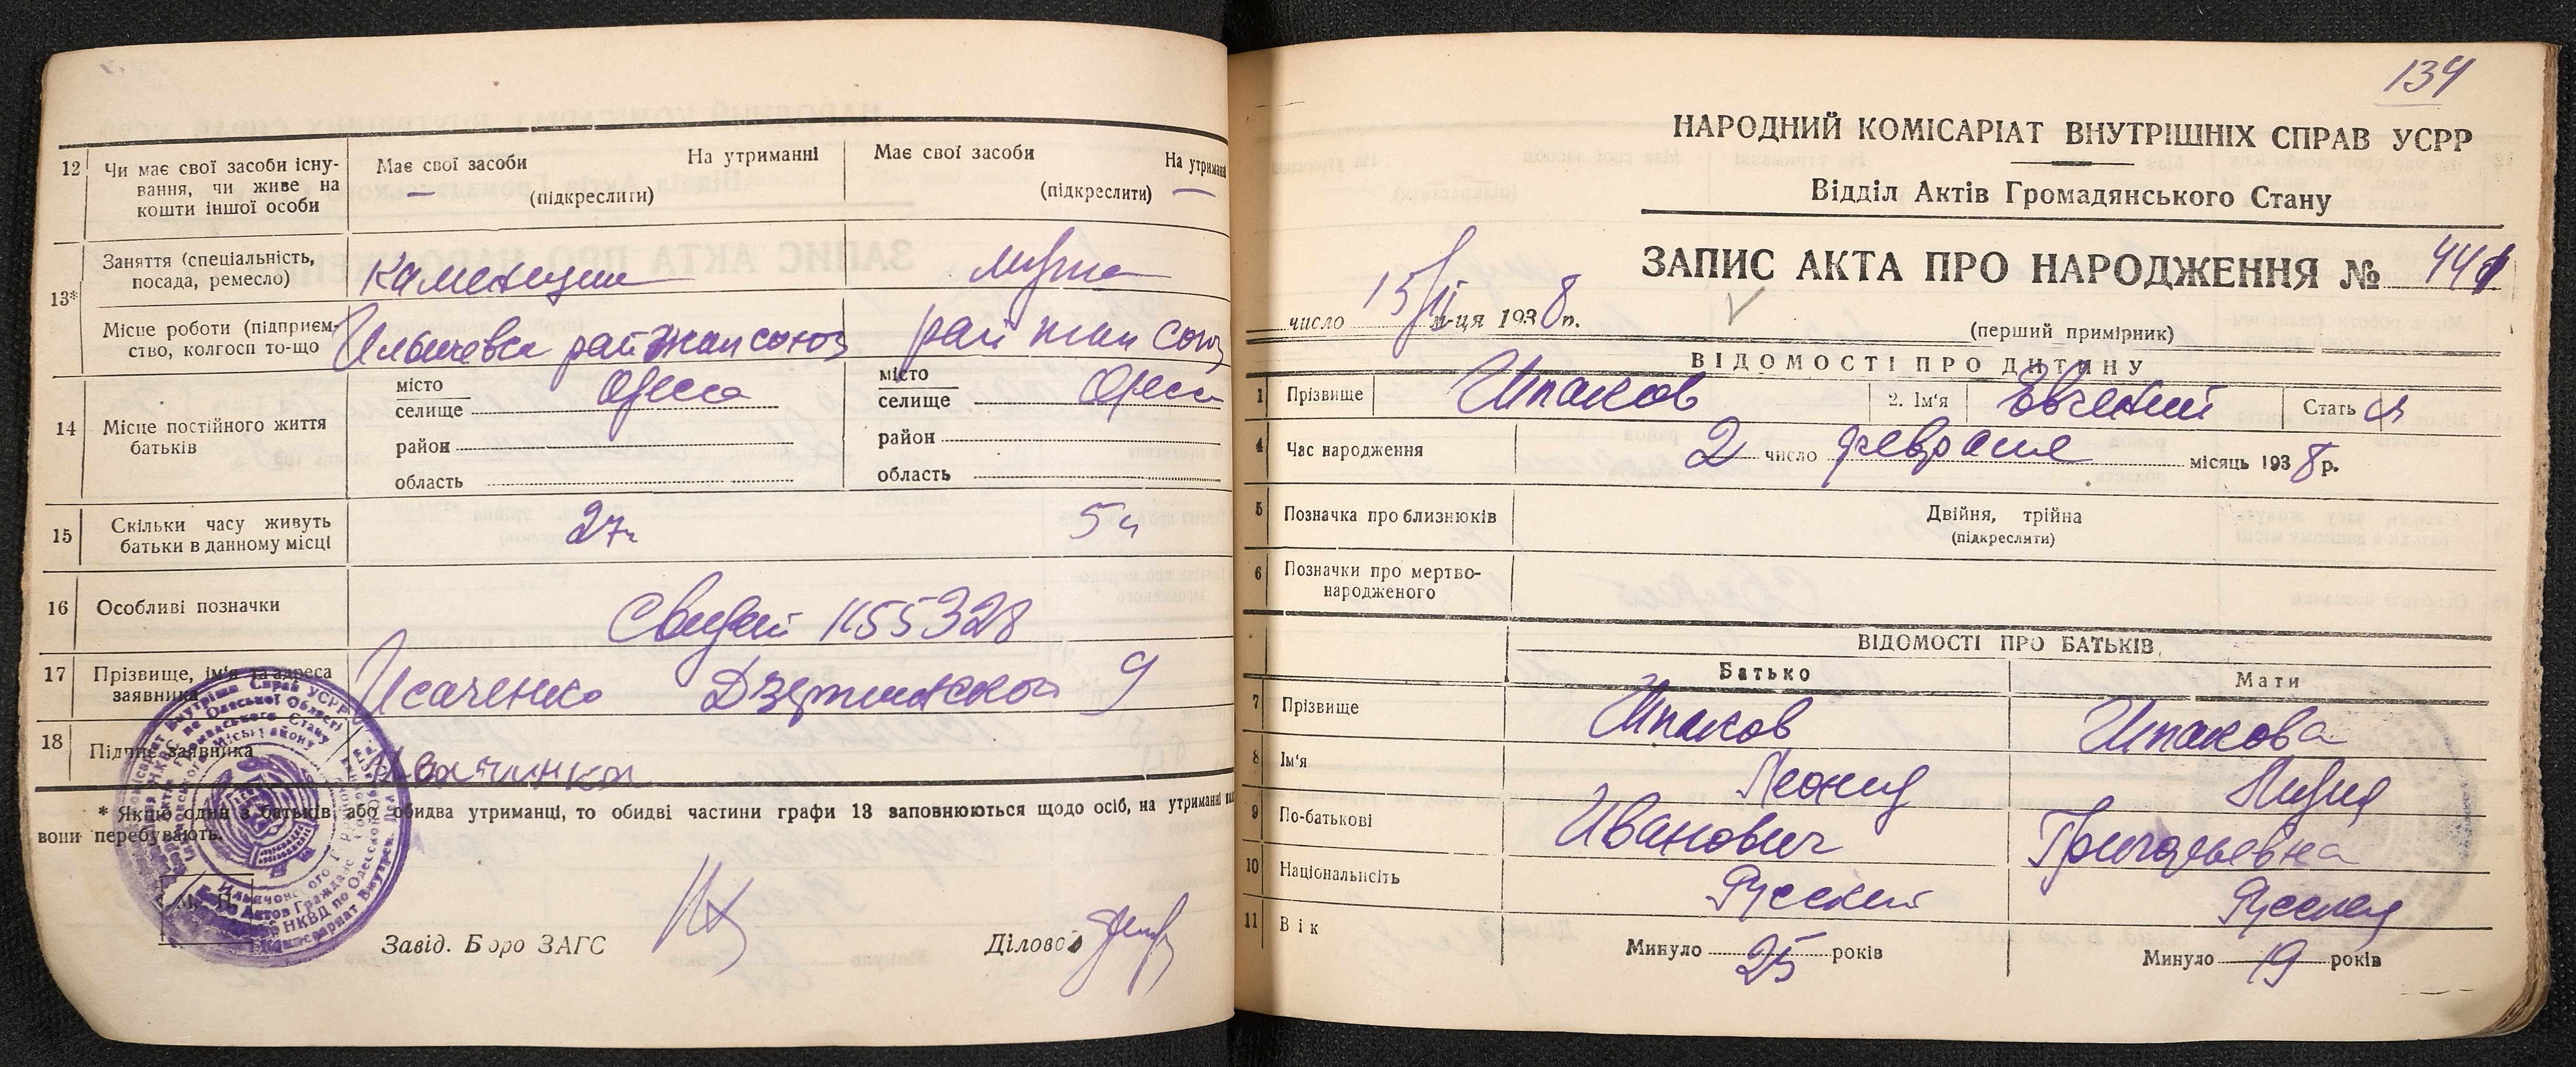 12 Чи має свої засоби існу-
вання, чи живе на
кошти іншої особи
Має свої засоби На утриманні
(підкреслити)
Має свої засоби На утриманні
(підкреслити)
13*
Заняття (спеціальність,
посада, ремесло)
Каменщик
мужа
Місце роботи (підприєм-
ство, колгосп то-що
рай жил союз
14 Місце постійного життя
батьків
місто
селище Одесса
район
область
місто
селище Одесса
район
область
15 Скільки часу живуть
батьки в данному місці
16 Особливі позначки
№55328
17 Прізвище, ім'я та адреса
заявника
Исаченко Дзержинской 9
18 Підпис заявника
* Якщо один з батьків, або обидва утриманці, то обидві частини графи 13 заповнюються щодо осіб, на утриманні
вони перебувають.
М. П.
Завід. Бюро ЗАГС
Діловод
134
НАРОДНИЙ КОМІСАРІАТ ВНУТРІШНІХ СПРАВ УСРР
Відділ Актів Громадянського Стану
ЗАПИС АКТА ПРО НАРОДЖЕННЯ № 441
число 15/II м-ця 1938 р.
(перший примірник)
ВІДОМОСТІ ПРО ДИТИНУ
1 Прізвище Шпаков 2. Ім'я Евгений Стать
4 Час народження 2 число февраля місяць 1938 р.
5 Позначка про близнюків Двійня, трійна
(підкреслити)
6 Позначки про мертво-
народженого
ВІДОМОСТІ ПРО БАТЬКІВ
Батько Мати
7 Прізвище Шпаков Шпакова
8 Ім'я Леонид Лидия
9 По-батькові Иванович Григорьевна
10 Національність Русский Русская
11 Вік
Минуло 25 років Минуло 19 років